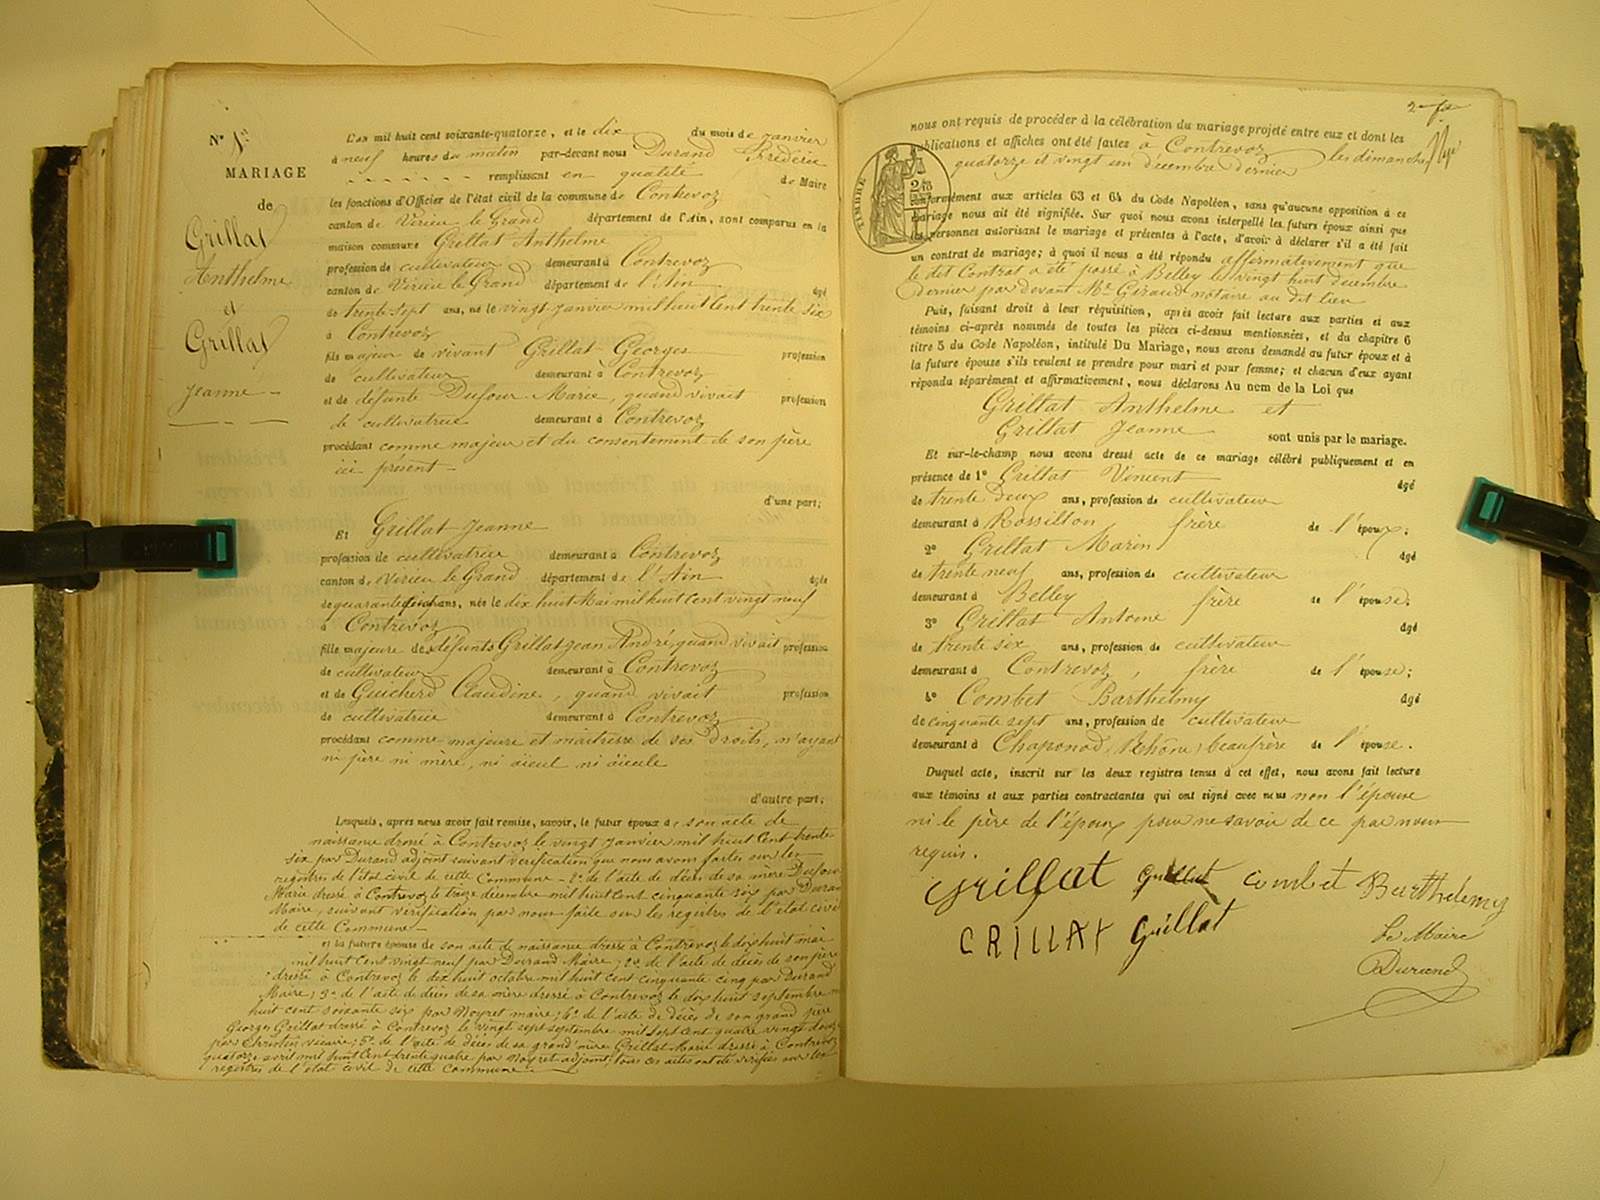 N° 1er
MARIAGE
de
Grillat
Anthelme
et
Grillat
Jeanne
L'an mil huit cent soixante-quatorze, et le dix du mois de Janvier
à neuf heures du matin par-devant nous Durand Frédéric
remplissant en qualité de Maire
les fonctions d'Officier de l'état civil de la commune de Contrevoz
canton de Virieu le Grand département de l'Ain, sont comparus en la
maison commune Grillat Anthelme
profession de cultivateur demeurant à Contrevoz
canton de Virieu le Grand département de l'Ain âgé
de trente sept ans, né le vingt Janvier mil huit cent trente six
à Contrevoz
fils majeur de vivant Grillat Georges profession
de cultivateur demeurant à Contrevoz
et de défunte Dufour Marie, quand vivait profession
de cultivatrice demeurant à Contrevoz
procédant comme majeur et du consentement de son père
ici présent
d'une part;
Et Grillat Jeanne
profession de cultivatrice demeurant à Contrevoz
canton de Virieu le Grand département de l'Ain âgée
de quarante ans, née le dix huit Mai mil huit cent vingt neuf
à Contrevoz
fille majeure de défunts Grillat Jean André, quand vivait profession
de cultivateur demeurant à Contrevoz
et de Guicherd Claudine, quand vivait profession
de cultivatrice demeurant à Contrevoz
procédant comme majeure et maitresse de ses Droits, n'ayant
ni père ni mère, ni aieul ni aieule
d'autre part;
Lesquels, après nous avoir fait remise, savoir, le futur époux de son acte de
naissance dressé à Contrevoz le vingt Janvier mil huit Cent trente
six par Durand adjoint suivant vérification que nous avons faites sur les
registres de l'état civil de cette Commune - 2° de l'acte de décès de sa mère Dufour
Marie dressé à Contrevoz le treize décembre mil huit cent cinquante six par Durand
Maire, suivant vérification par nous faite sur les registres de l'état civil
de cette Commune
et la future épouse de son acte de naissance dressé à Contrevoz le dix huit mai
mil huit Cent vingt neuf par Durand Maire; 2° de l'acte de décès de son père
dressé à Contrevoz le dix huit octobre mil huit cent cinquante cinq par Durand
Maire; 3° de l'acte de décès de sa mère dressé à Contrevoz le dix huit septembre
huit cent soixante six par Noyret maire; 4° de l'acte de décès de son grand père
Georges Grillat dressé à Contrevoz le vingt sept septembre mil sept cent quatre vingt douze
par Christin vicaire; 5° de l'acte de décès de sa grand'mère Grillat Marie dressé à Contrevoz
quatorze avril mil huit Cent trente quatre par Noyret adjoint, tous ces actes ont été vérifiés sur les
registres de l'état civil de cette Commune
nous ont requis de procéder à la célébration du mariage projeté entre eux et dont les
publications et affiches ont été faites à Contrevoz les dimanches
quatorze et vingt un décembre dernier
TIMBRE
conformément aux articles 63 et 64 du Code Napoléon, sans qu'aucune opposition à ce
mariage nous ait été signifiée. Sur quoi nous avons interpellé les futurs époux ainsi que
les personnes autorisant le mariage et présentes à l'acte, d'avoir à déclarer s'il a été fait
un contrat de mariage; à quoi il nous a été répondu affirmativement que
le dit Contrat a été passé à Belley le vingt huit décembre
dernier par devant Me Giraud notaire au dit lieu
Puis, faisant droit à leur réquisition, après avoir fait lecture aux parties et aux
témoins ci-après nommés de toutes les pièces ci-dessus mentionnées, et du chapitre 6
titre 5 du Code Napoléon, intitulé Du Mariage, nous avons demandé au futur époux et à
la future épouse s'ils veulent se prendre pour mari et pour femme; et chacun d'eux ayant
répondu séparément et affirmativement, nous déclarons Au nom de la Loi que
Grillat Anthelme et
Grillat Jeanne sont unis par le mariage.
Et sur-le-champ nous avons dressé acte de ce mariage célébré publiquement et en
présence de 1° Grillat Vincent âgé
de trente deux ans, profession de cultivateur
demeurant à Rossillon frère de l'époux;
2° Grillat Marin âgé
de trente neuf ans, profession de cultivateur
demeurant à Belley frère de l'épouse;
3° Grillat Antoine âgé
de trente six ans, profession de cultivateur
demeurant à Contrevoz, frère de l'épouse;
4° Combet Barthelmy âgé
de cinquante sept ans, profession de cultivateur
demeurant à Chaponod, Rhône, beaufrère de l'épouse.
Duquel acte, inscrit sur les deux registres tenus à cet effet, nous avons fait lecture
aux témoins et aux parties contractantes qui ont signé avec nous non l'épouse
ni le père de l'époux pour ne savoir de ce par nous
requis.
Grillat Grillat combet Barthelemy
GRILLAT Grillat
Le Maire
Durand